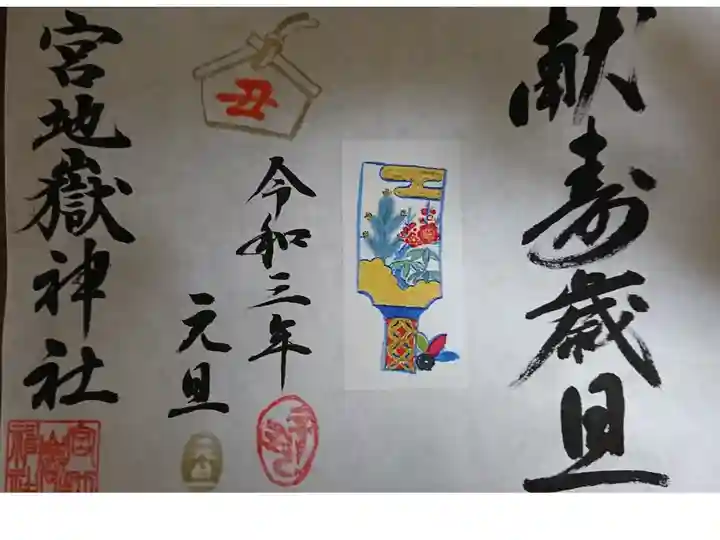 献寿歳旦
丑
令和三年
元旦
宮地嶽神社